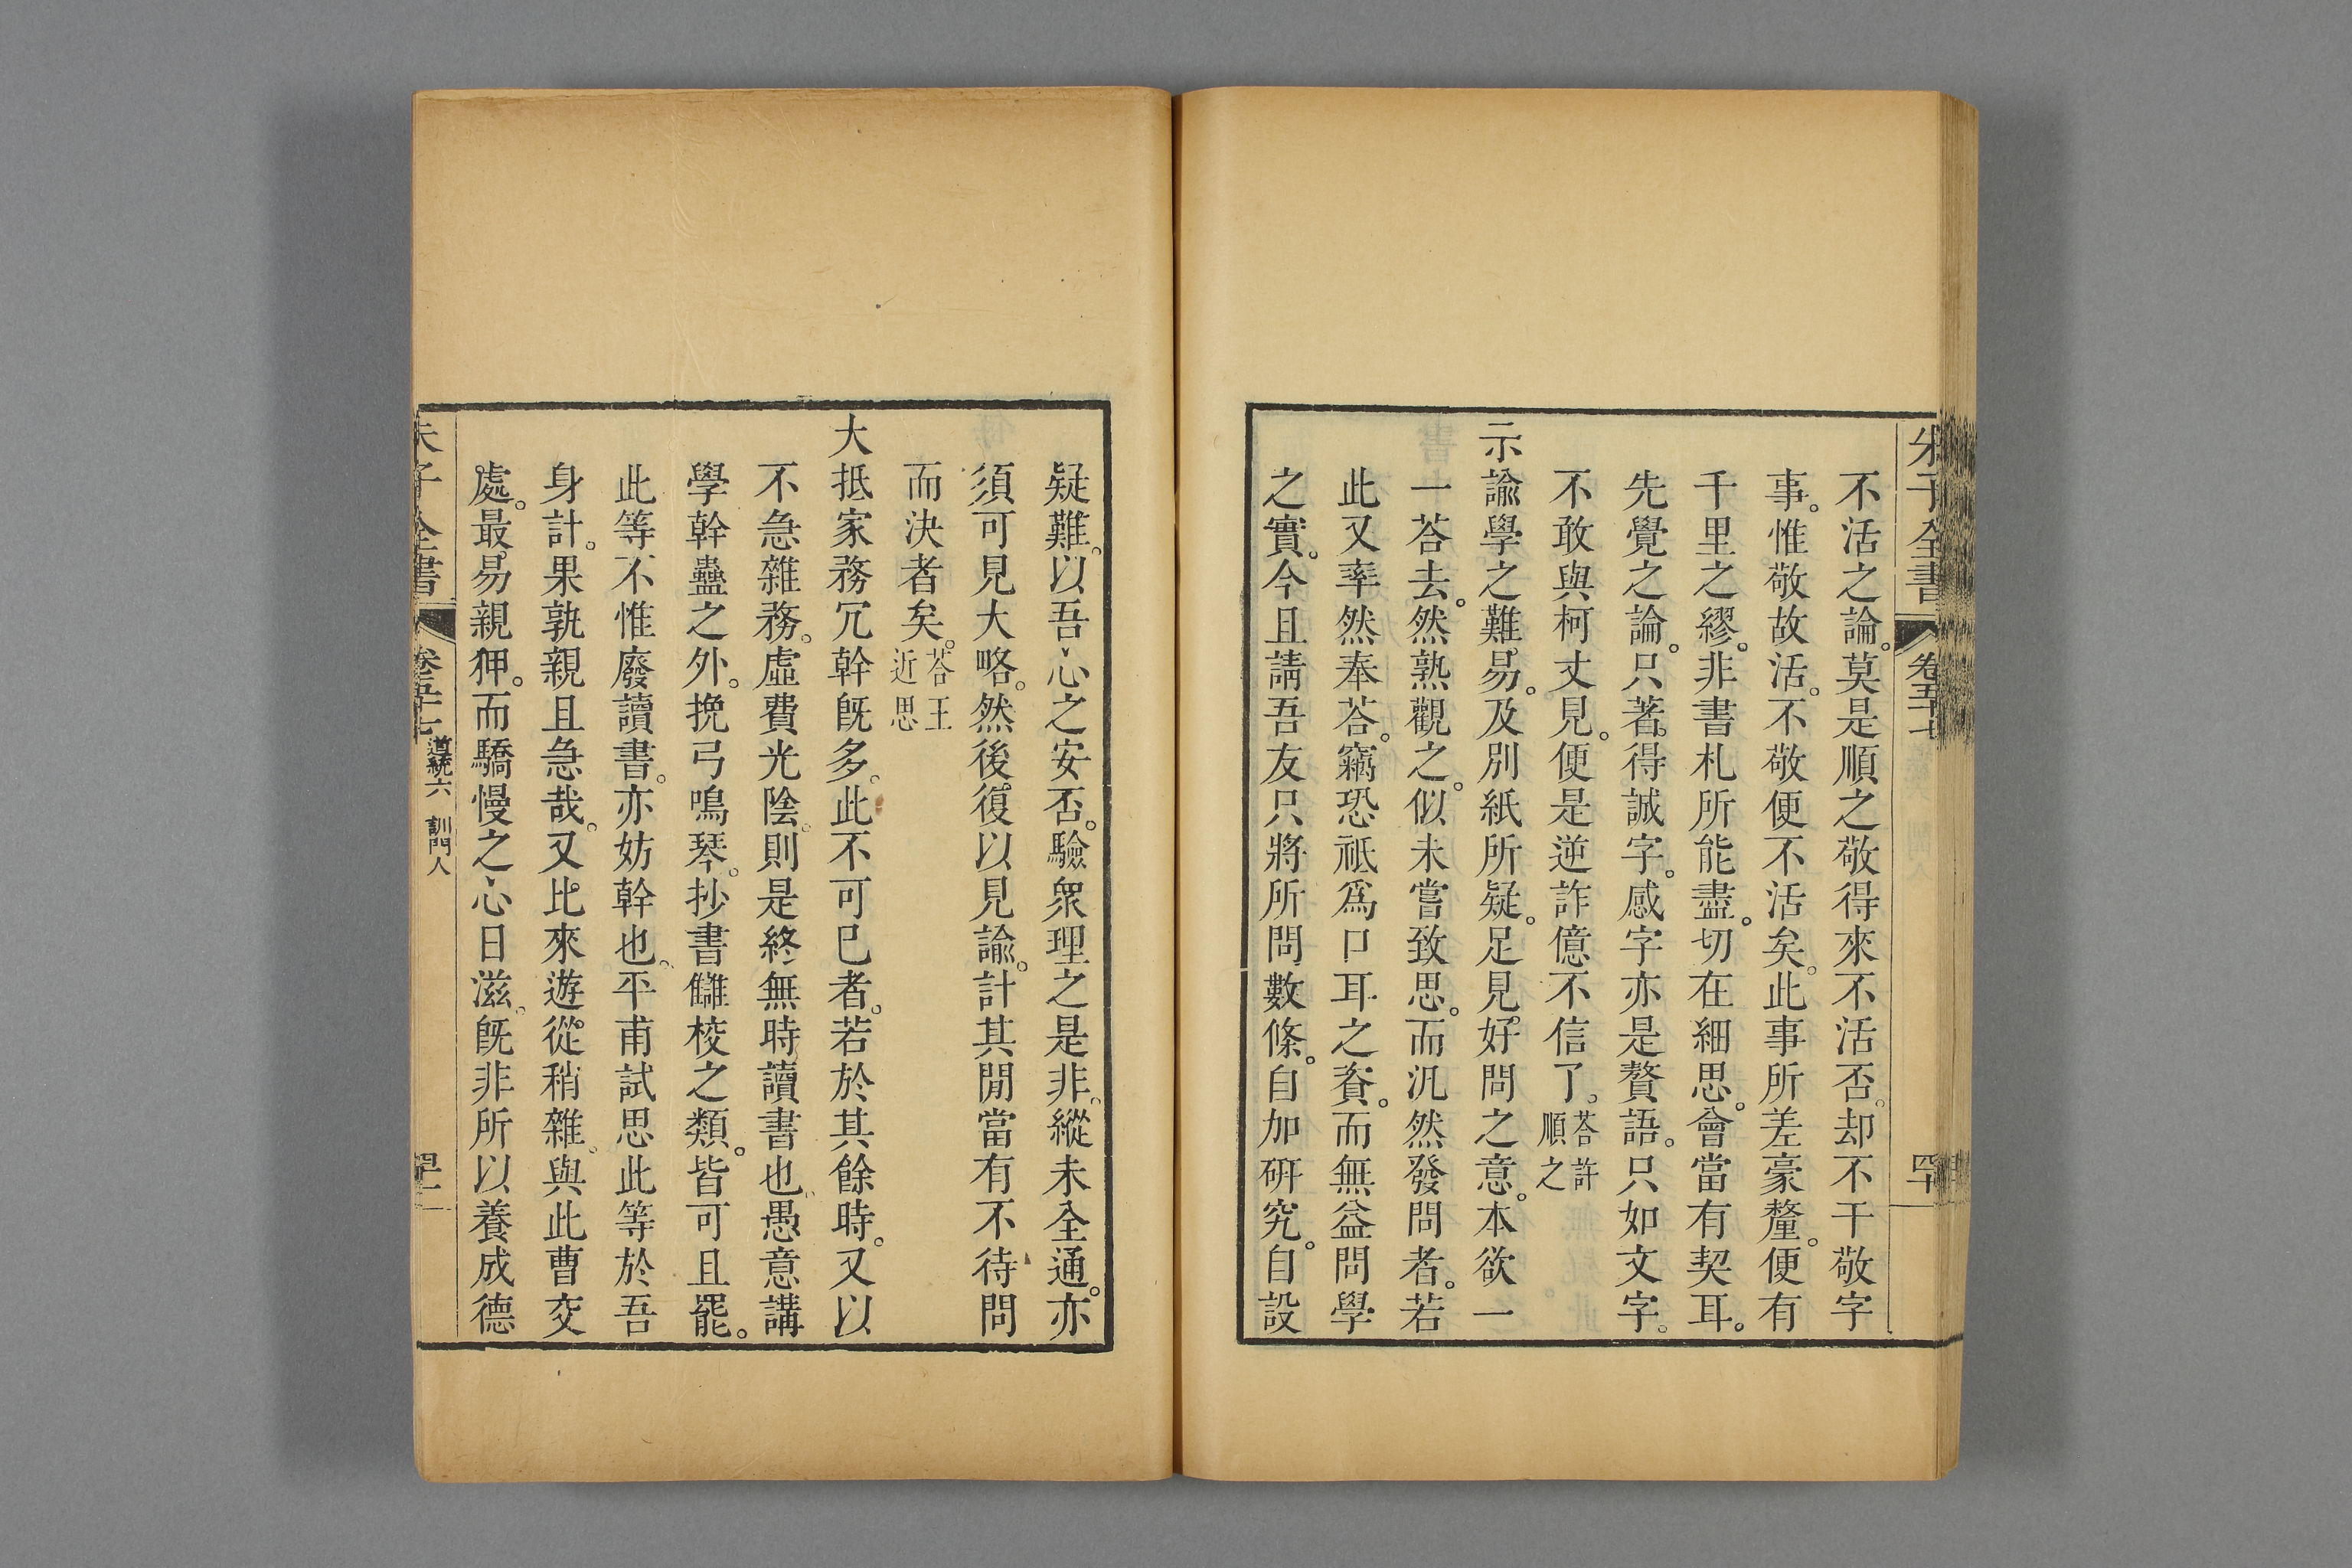 朱子全書 卷五十七 四十
不活之論。莫是順之敬得來不活否。却不干敬字
事。惟敬故活。不敬便不活矣。此事所差豪釐。便有
千里之繆。非書札所能盡。切在細思。會當有契耳。
先覺之論。只著。得誠字。感字亦是贅語。只如文字。
不敢與柯丈見。便是逆詐億不信了。荅許順之
示諭學之難易。及別紙所疑。足見。好問之意。本欲一
一荅去。然熟觀之。似未嘗致思。而汎然發問者。若
此又率然奉荅。竊恐祗爲口耳之資。而無益問學
之實。今且請吾友只將所問數條。自加硏究。自設
疑難。以吾心之安否。驗衆理之是非。縱未全通。亦
須可見大略。然後。復以見諭。計其閒當有不待問
而決者矣。荅王近思
大抵家務冗幹旣多。此不可已者。若於其餘時。又以
不急雜務。虛費光陰。則是終無時讀書也。愚意講
學幹蠱之外。挽弓鳴琴。抄書讎校之類。皆可且罷。
此等不惟廢讀書。亦妨幹也。平甫試思此等於吾
身計。果孰親且急哉。又比來遊從。稍雜。與此曹交
處。最易親狎。而驕慢之心日滋。旣非所以養成德
朱子全書 卷五十七 道統六 訓門人 四十一